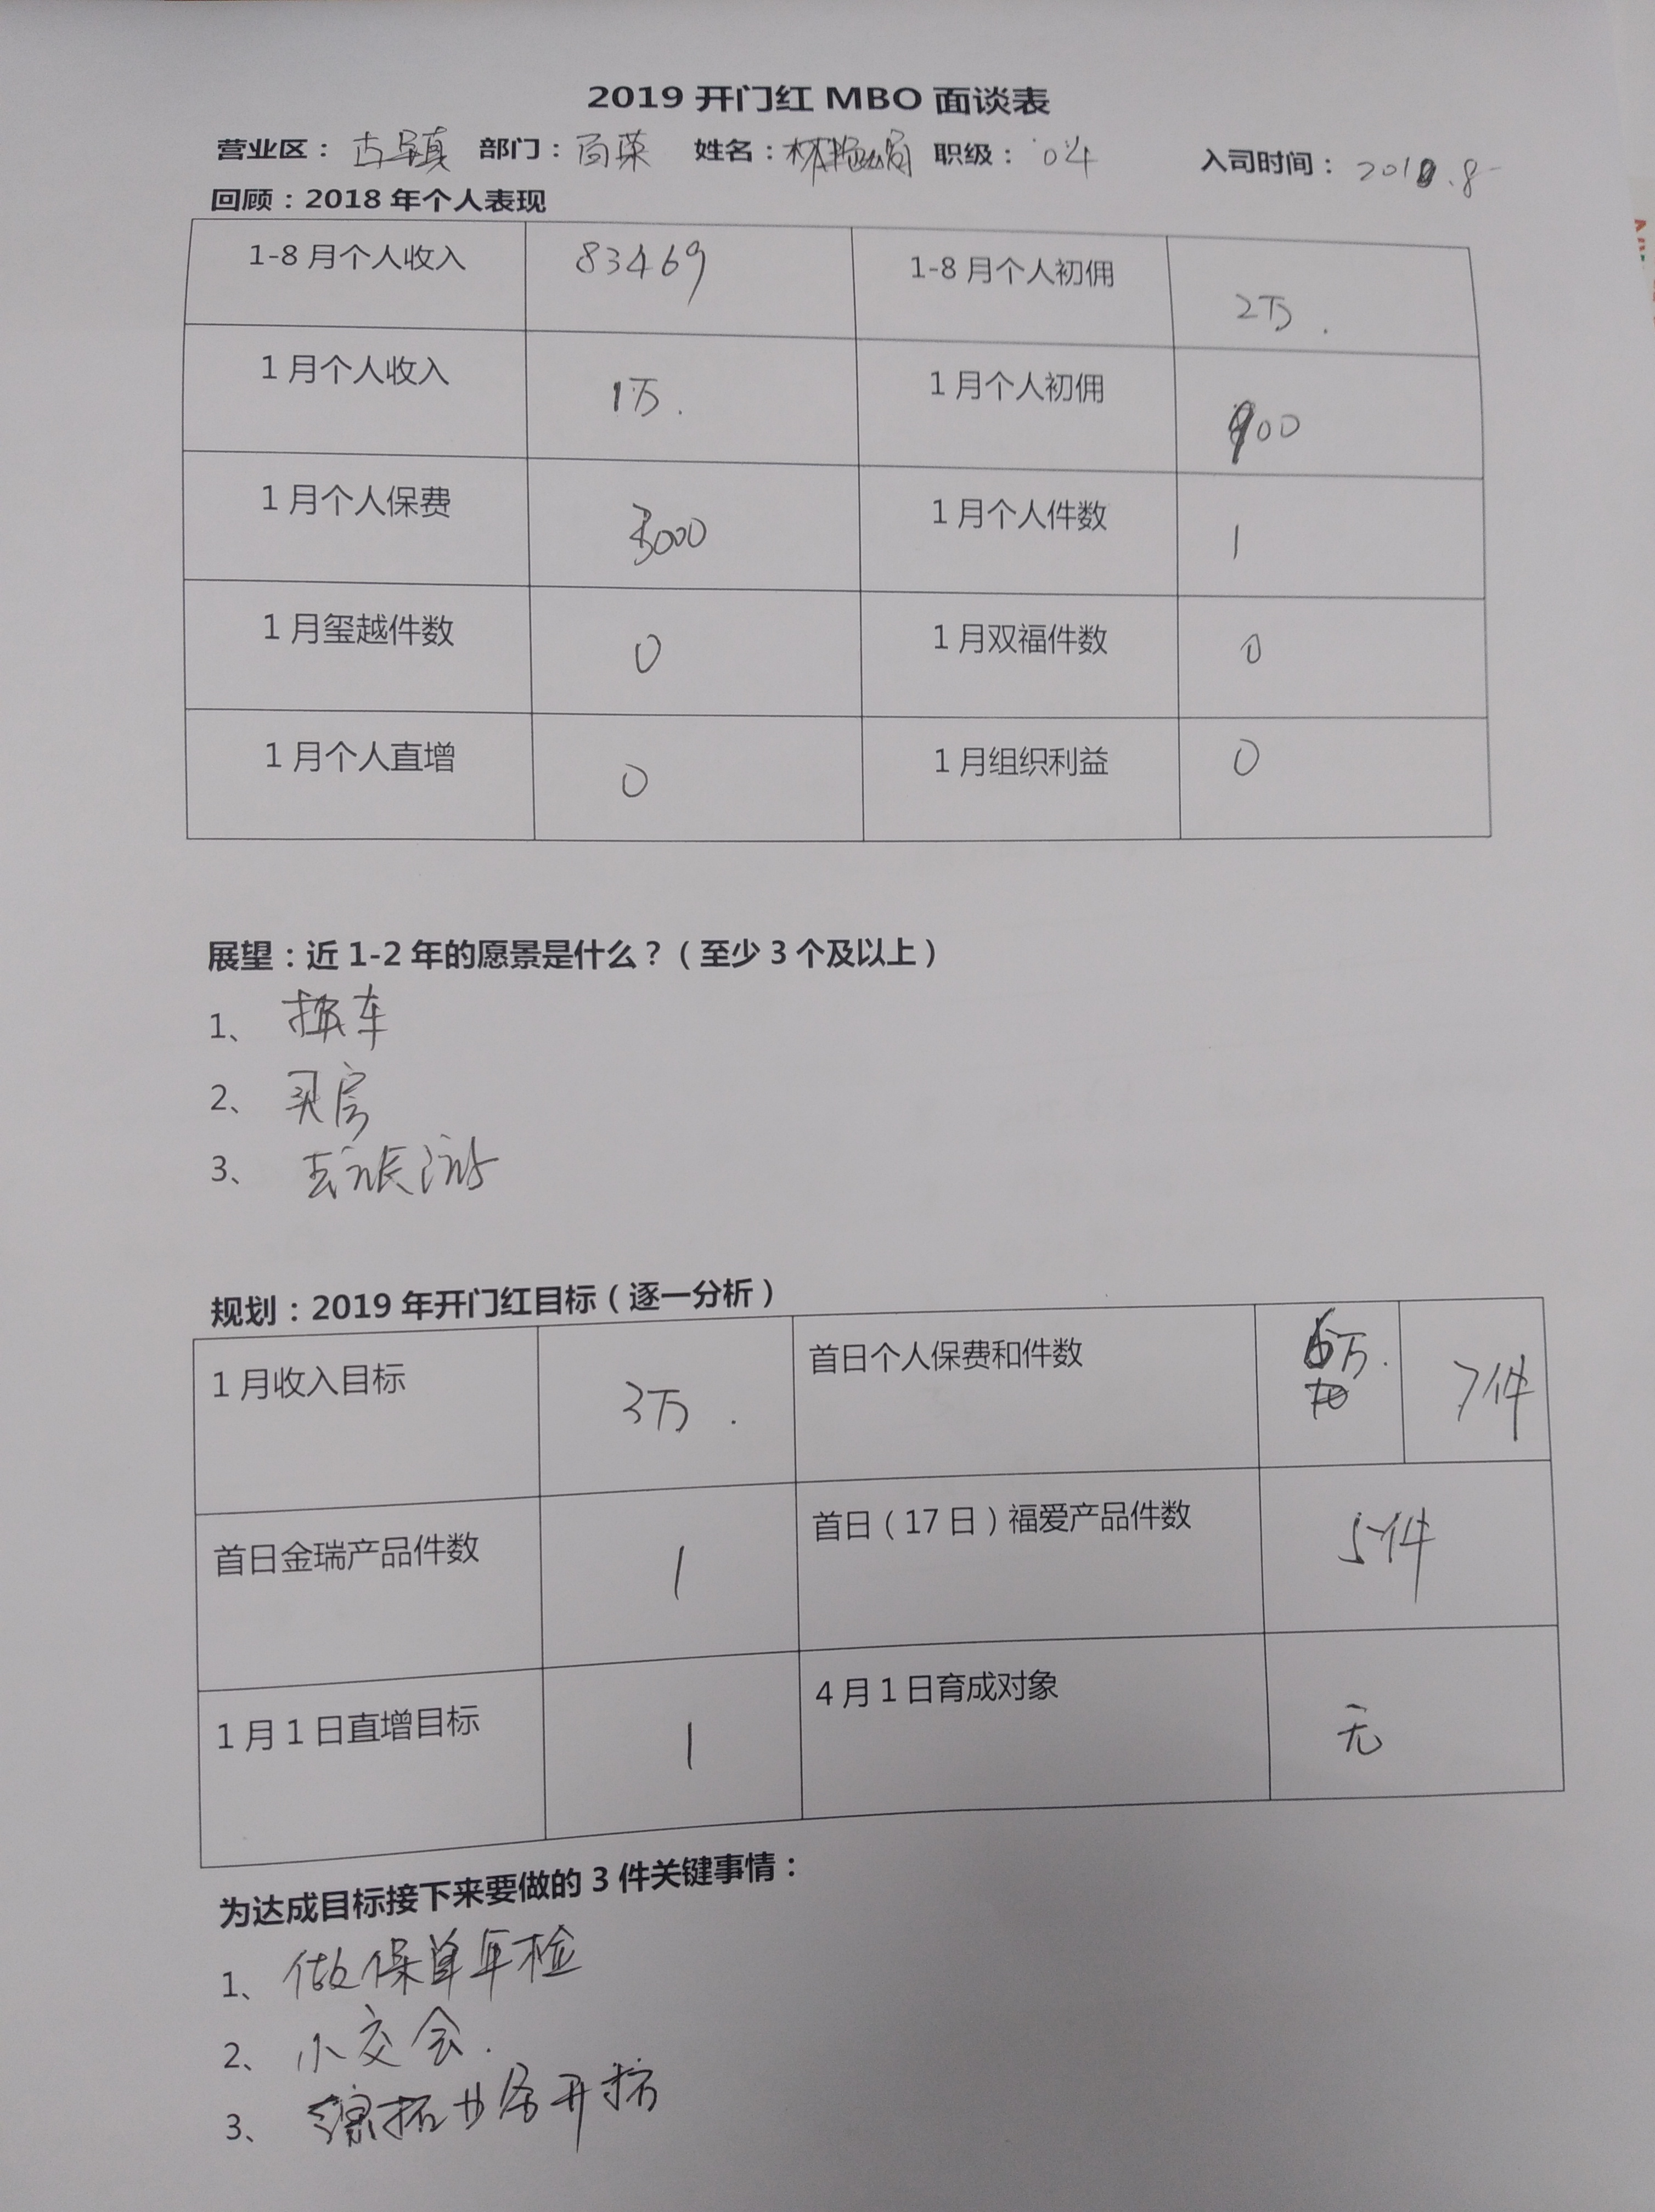 2019 开门红 MBO 面谈表
营业区： 古镇 部门： 百荣 姓名： 林艳娟 职级： 入司时间： 201 .8
回顾：2018 年个人表现
1-8 月个人收入 83469 1-8 月个人初佣 2万.
1 月个人收入 1万. 1 月个人初佣 900
1 月个人保费 3000 1 月个人件数 1
1 月玺越件数 0 1 月双福件数 0
1 月个人直增 0 1 月组织利益 0
展望：近 1-2 年的愿景是什么？（至少 3 个及以上）
1、 换车
2、 买房
3、 去旅游
规划：2019 年开门红目标（逐一分析）
1 月收入目标 3万. 首日个人保费和件数 6万. 7件
首日金瑞产品件数 1 首日（17 日）福爱产品件数 5件
1 月 1 日直增目标 1 4 月 1 日育成对象 无
为达成目标接下来要做的 3 件关键事情：
1、 做保单年检
2、 小交会.
3、 开拓